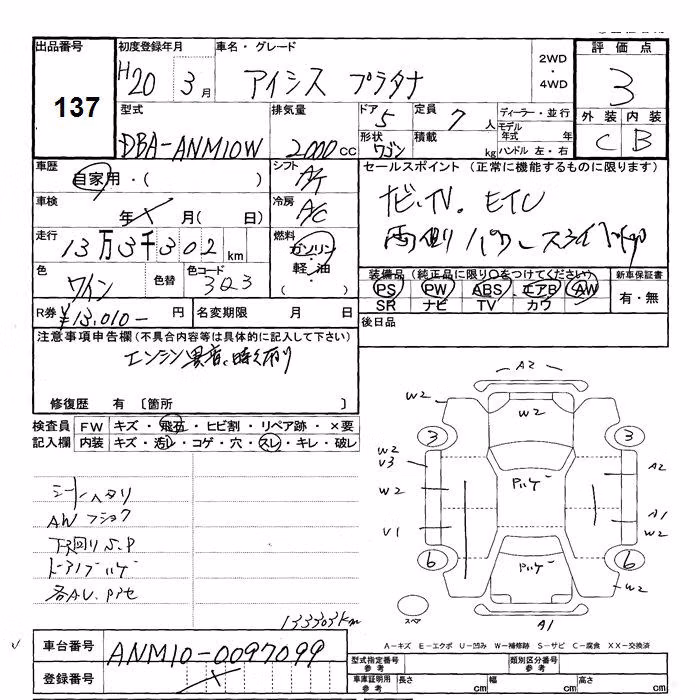 出品番号
137
初度登録年月
H20 3月
車名・グレード
アイシス プラタナ
2WD
・
4WD
評価点
3
外装 内装
C B
型式
DBA-ANM10W
排気量
2000cc
ドア 5
形状 ワゴン
定員 7人
積載 kg
ディーラー・並行
モデル年式 年
ハンドル 左・右
車歴
自家用・( )
車検
年 月( 日)
走行
13万3千302km
色
ワイン
色替
色コード
3Q3
シフト
AT
冷房
AC
燃料
ガソリン
軽油
セールスポイント (正常に機能するものに限ります)
ナビ・TV. ETC
両側パワースライドドア
装備品(純正品に限り○をつけてください)
PS PW ABS エアB AW
SR ナビ TV カワ
新車保証書
有・無
R券 ¥13,010- 円
名変期限 月 日
後日品
注意事項申告欄(不具合内容等は具体的に記入して下さい)
エンジン異音、時々有り
修復歴 有 [箇所 ]
検査員 FW キズ・飛石・ヒビ割・リペア跡・×要
記入欄 内装 キズ・汚レ・コゲ・穴・スレ・キレ・破レ
シートヘタリ
AW フショク
下回りS.P
ドアノブハゲ
133303km
A2
W2
W2
3
3
W2
V3
A2
W2
A1
W2
V1
6
6
W2
スペア
A1
A-キズ E-エクボ U-凹み W-補修跡 S-サビ C-腐食 XX-交換済
車台番号
ANM10-0097099
登録番号
型式指定番号
参考
類別区分番号
参考
車庫証明用
参考
長さ cm
幅 cm
高さ cm